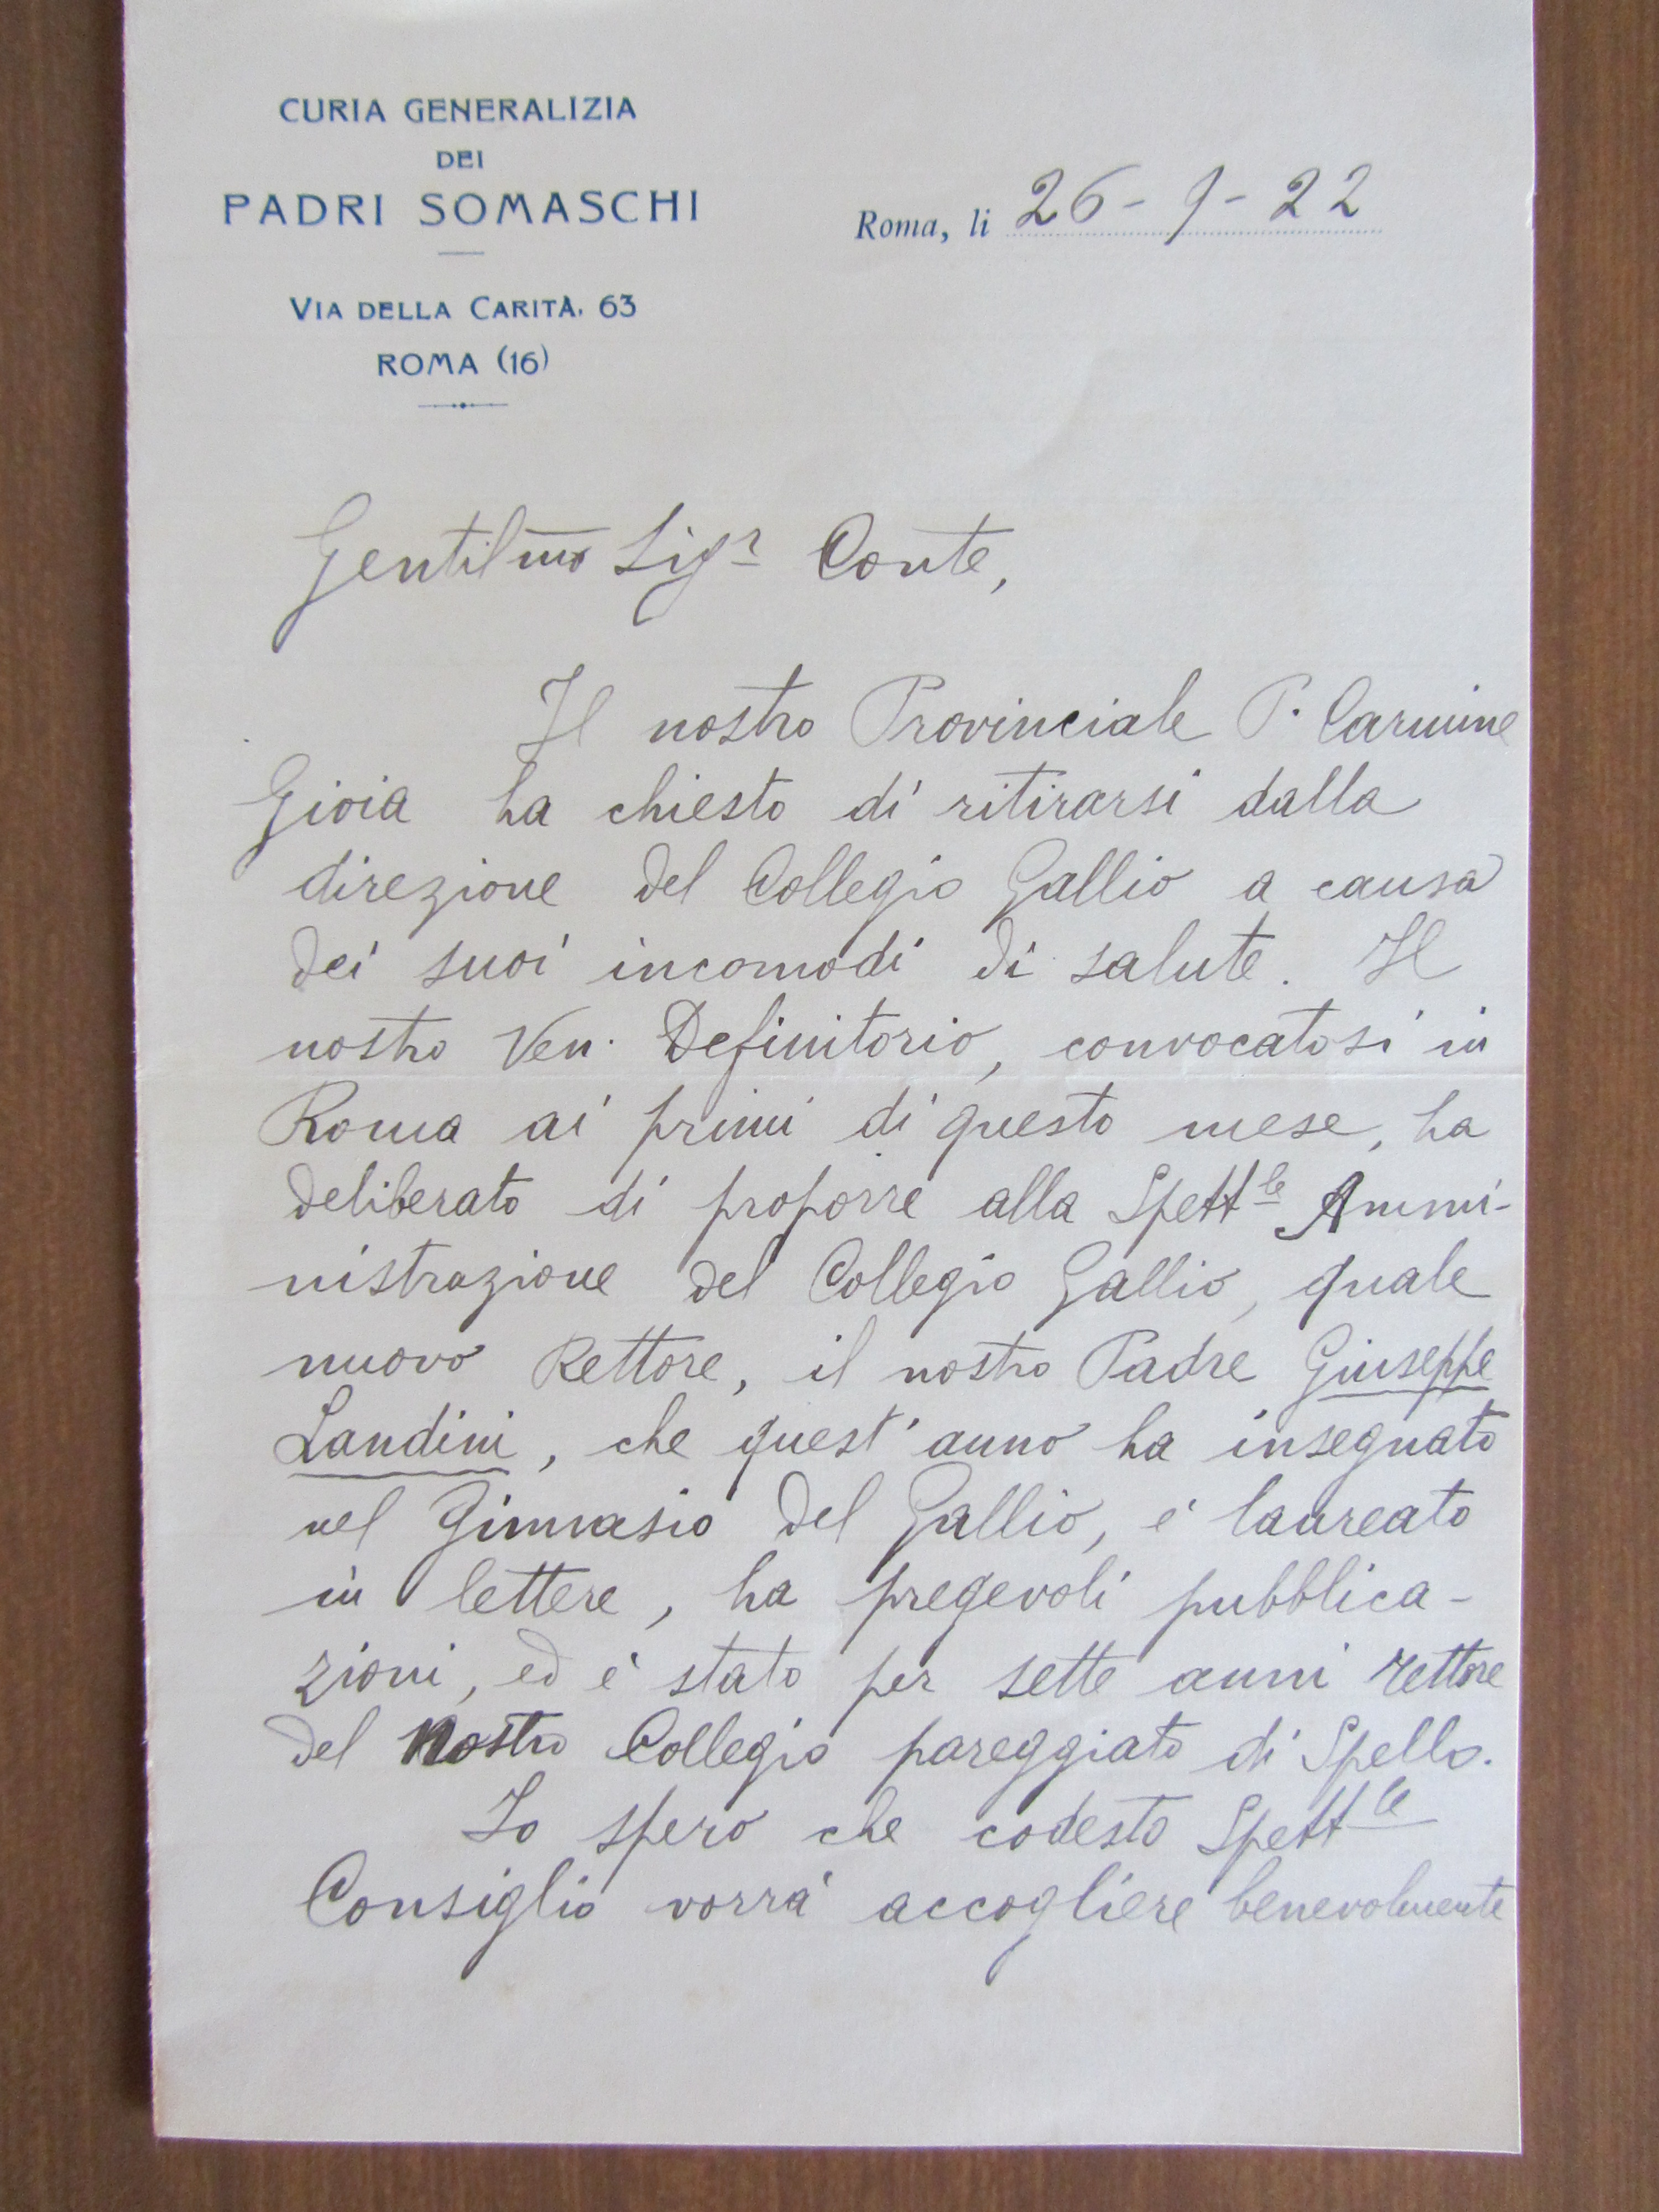 CURIA GENERALIZIA
DEI
PADRI SOMASCHI
VIA DELLA CARITÀ, 63
ROMA (16)
Roma, li 26-9-22
Gentilmo Sigr Conte,
Il nostro Provinciale P. Carmine
Gioia ha chiesto di ritirarsi dalla
direzione del Collegio Gallio a causa
dei suoi incomodi di salute. Il
nostro Ven. Definitorio, convocatosi in
Roma ai primi di questo mese, ha
deliberato di proporre alla Spettle Ammi-
nistrazione del Collegio Gallio, quale
nuovo Rettore, il nostro Padre Giuseppe
Landini, che quest'anno ha insegnato
nel Ginnasio del Gallio, è laureato
in lettere, ha pregevoli pubblica-
zioni, ed è stato per sette anni rettore
del nostro Collegio pareggiato di Spello.
Io spero che codesto Spettle
Consiglio vorrà accogliere benevolmente